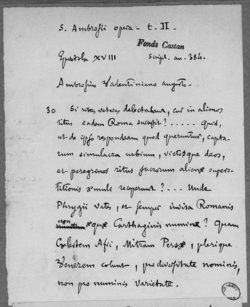 S. Ambrosii opera - t. II.
Fonds Castan
Epistola XVIII script. an. 384.
Ambrosius Valentiniano augusto
30 Si ritus veteres delectabant, cur in alienos
ritus eadem Roma successit? ..... Quid,
ut de ipso respondeam quod queruntur, captarum
simulacra urbium, victosque deos,
et peregrinos ritus sacrorum alienæ superstitionis
æmula receperunt? ... Unde
Phrygii vates, et semper invisa Romanis
non æquæ Carthaginis numina? Quam
Cœlestem Afri, Mithram Persæ, plerique
Venerem colunt, pro diversitate nominis,
non pro numinis varietate.